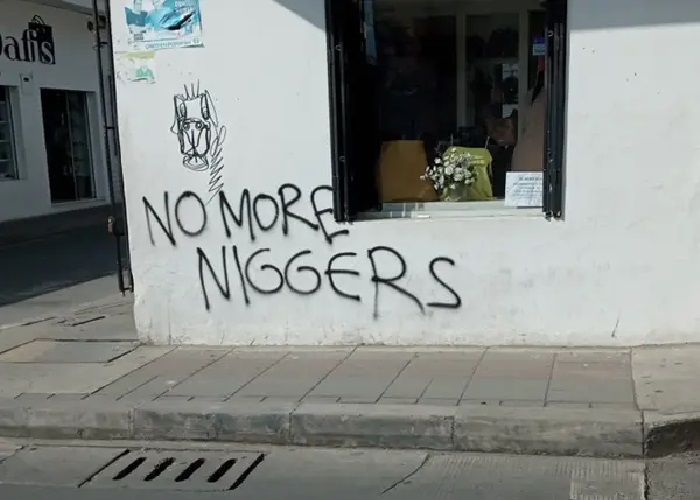 Dafis
NO MORE
NIGGERS